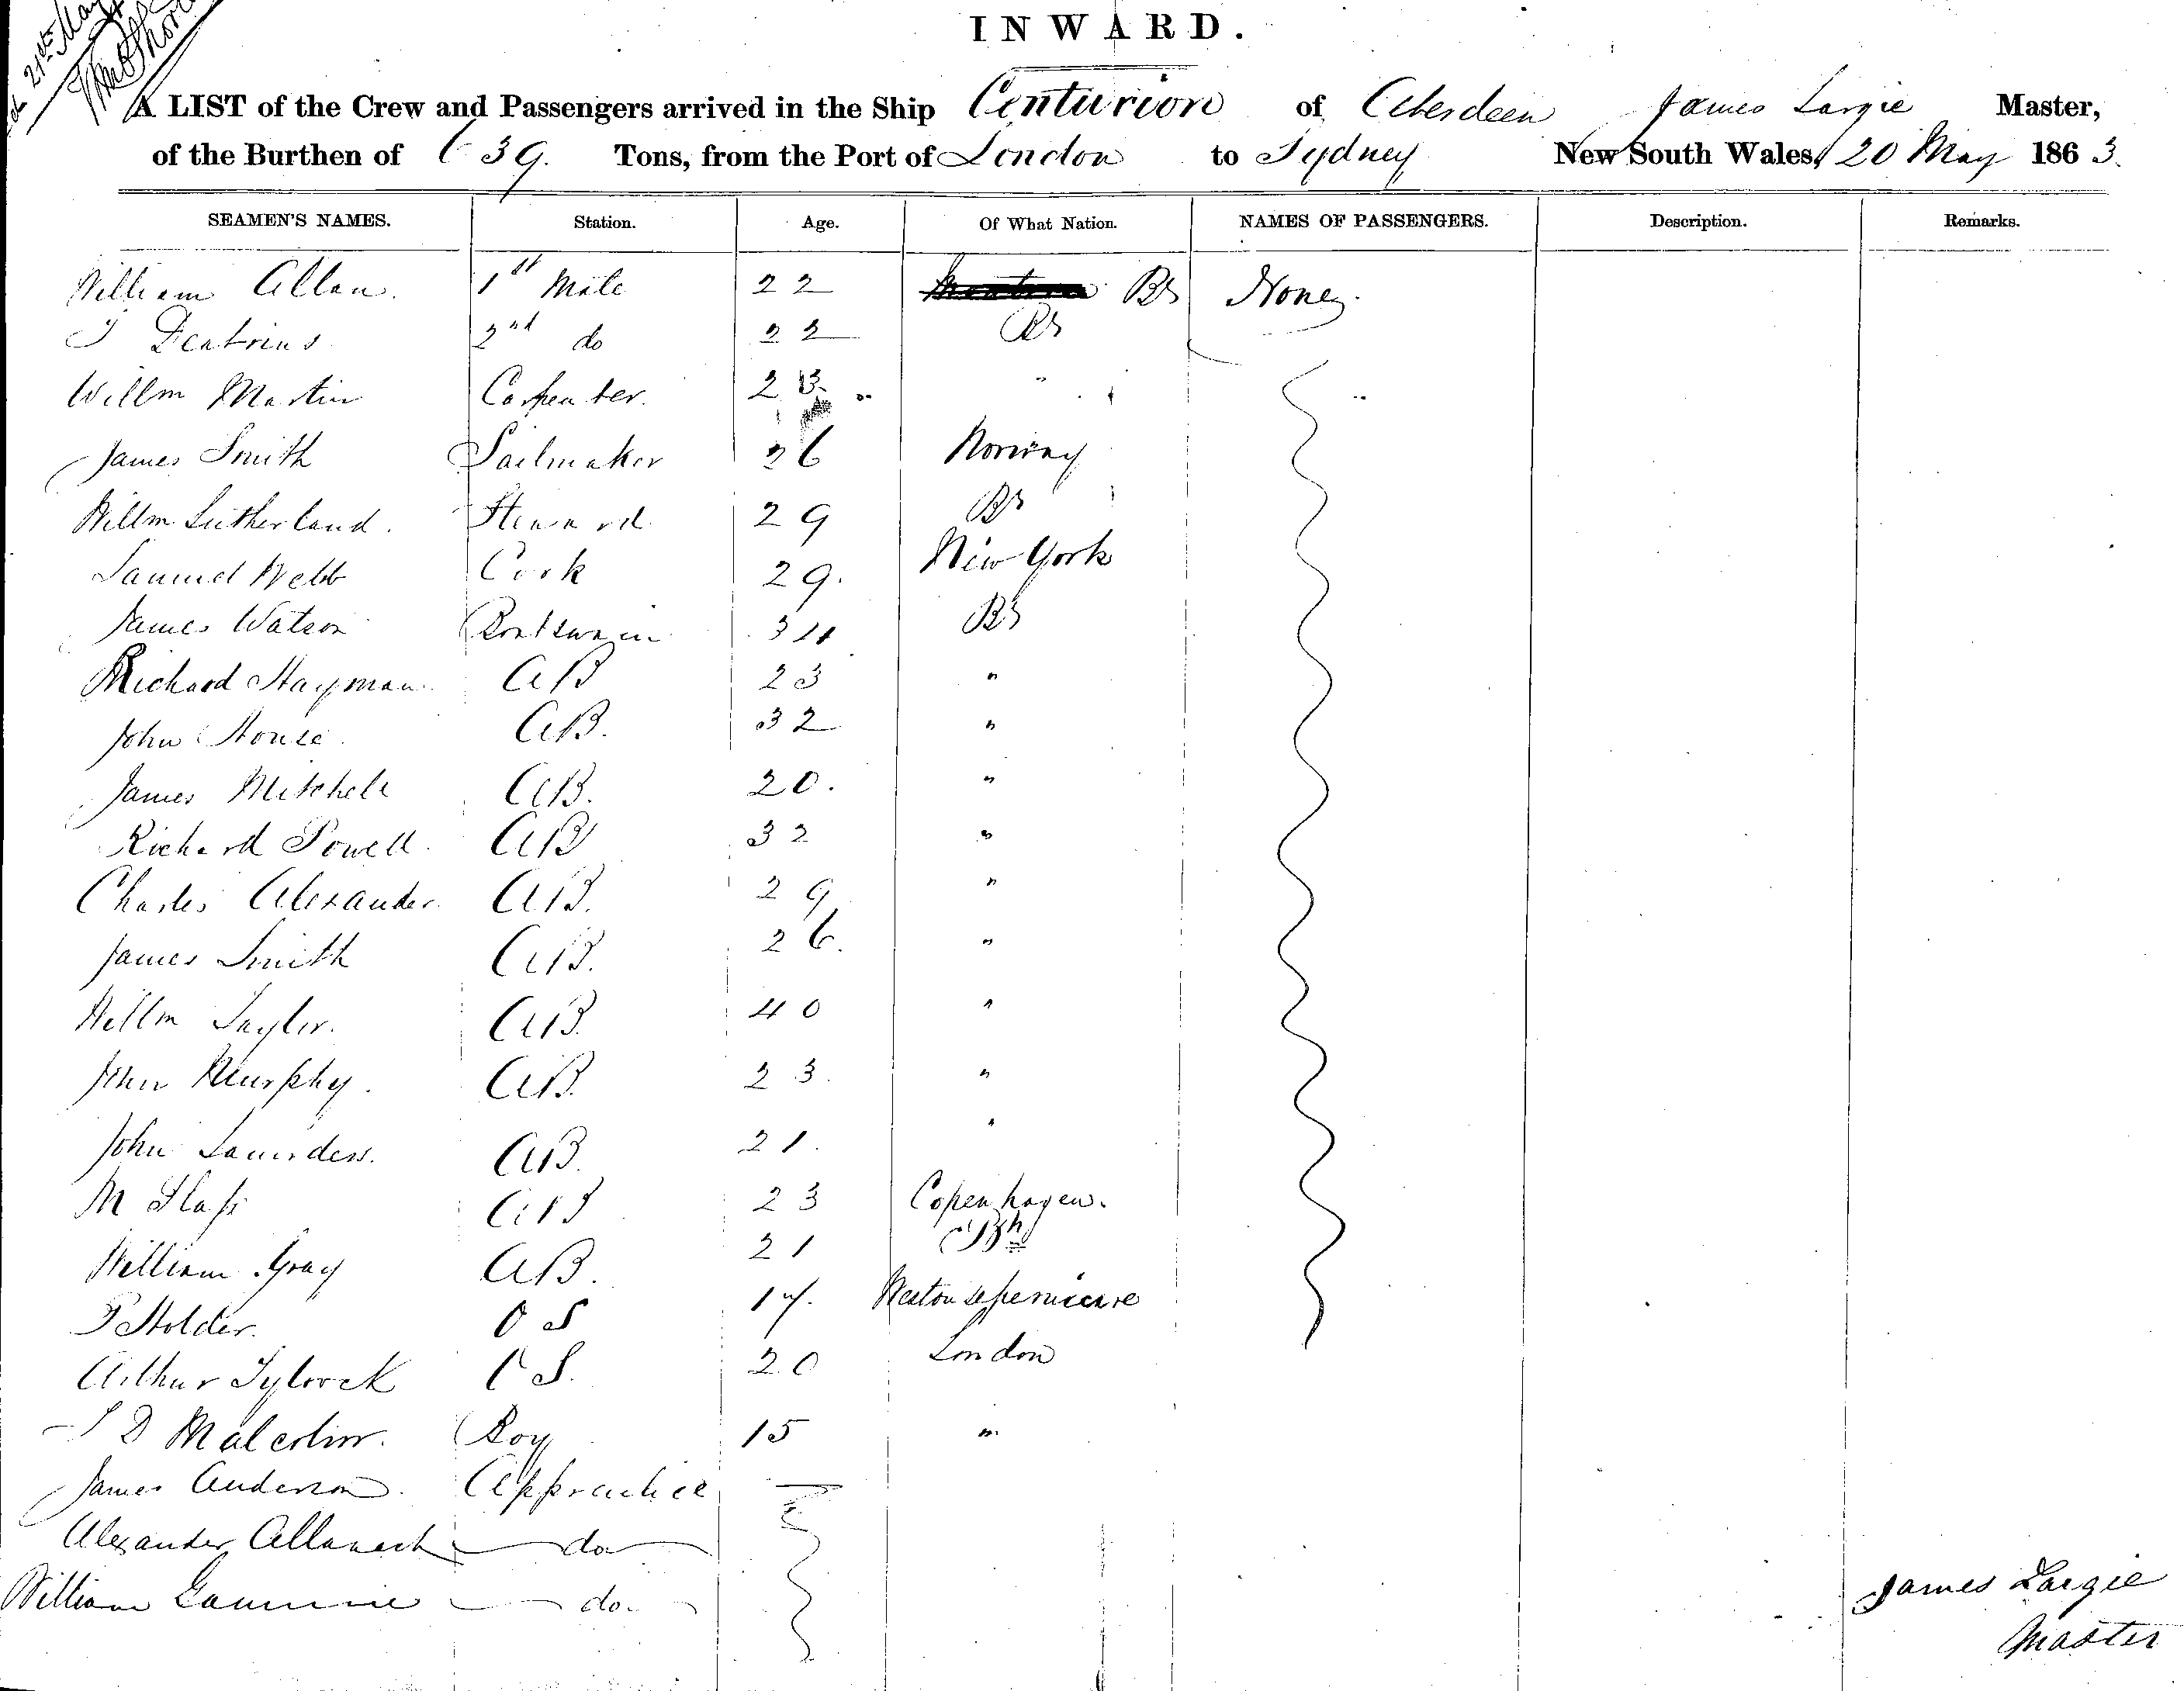 21st May
INWARD.
A LIST of the Crew and Passengers arrived in the Ship Centurion of Aberdeen James Largie Master,
of the Burthen of 639. Tons, from the Port of London to Sydney New South Wales, 20 May 1863.
SEAMEN'S NAMES. Station. Age. Of What Nation. NAMES OF PASSENGERS. Description. Remarks.
William Allan. 1st Mate 22 Br None
2nd do 22 Br
Willm Martin Carpenter. 23 "
James Smith Sailmaker 26 Norway
Willm Sutherland. Steward 29 Br
Samuel Webb Cook 29. New York
James Watson Boatswain 34 Br
Richard Hayman AB 23 "
John House. AB. 32 "
James Mitchell AB. 20. "
Richard Powell. AB 32 "
Charles Alexander. AB. 29 "
James Smith AB. 26. "
Willm Taylor. AB. 40 "
John Murphy. AB. 23. "
John Saunders. AB. 21. "
M AB 23 Copenhagen.
William Gray AB. 21 Bh
Holder. OS 17.
Arthur OS. 20 London
D Malcolm. Boy 15 "
James Anderson. Apprentice
Alexander Allanach do
William Gammie do.
James Largie
Master